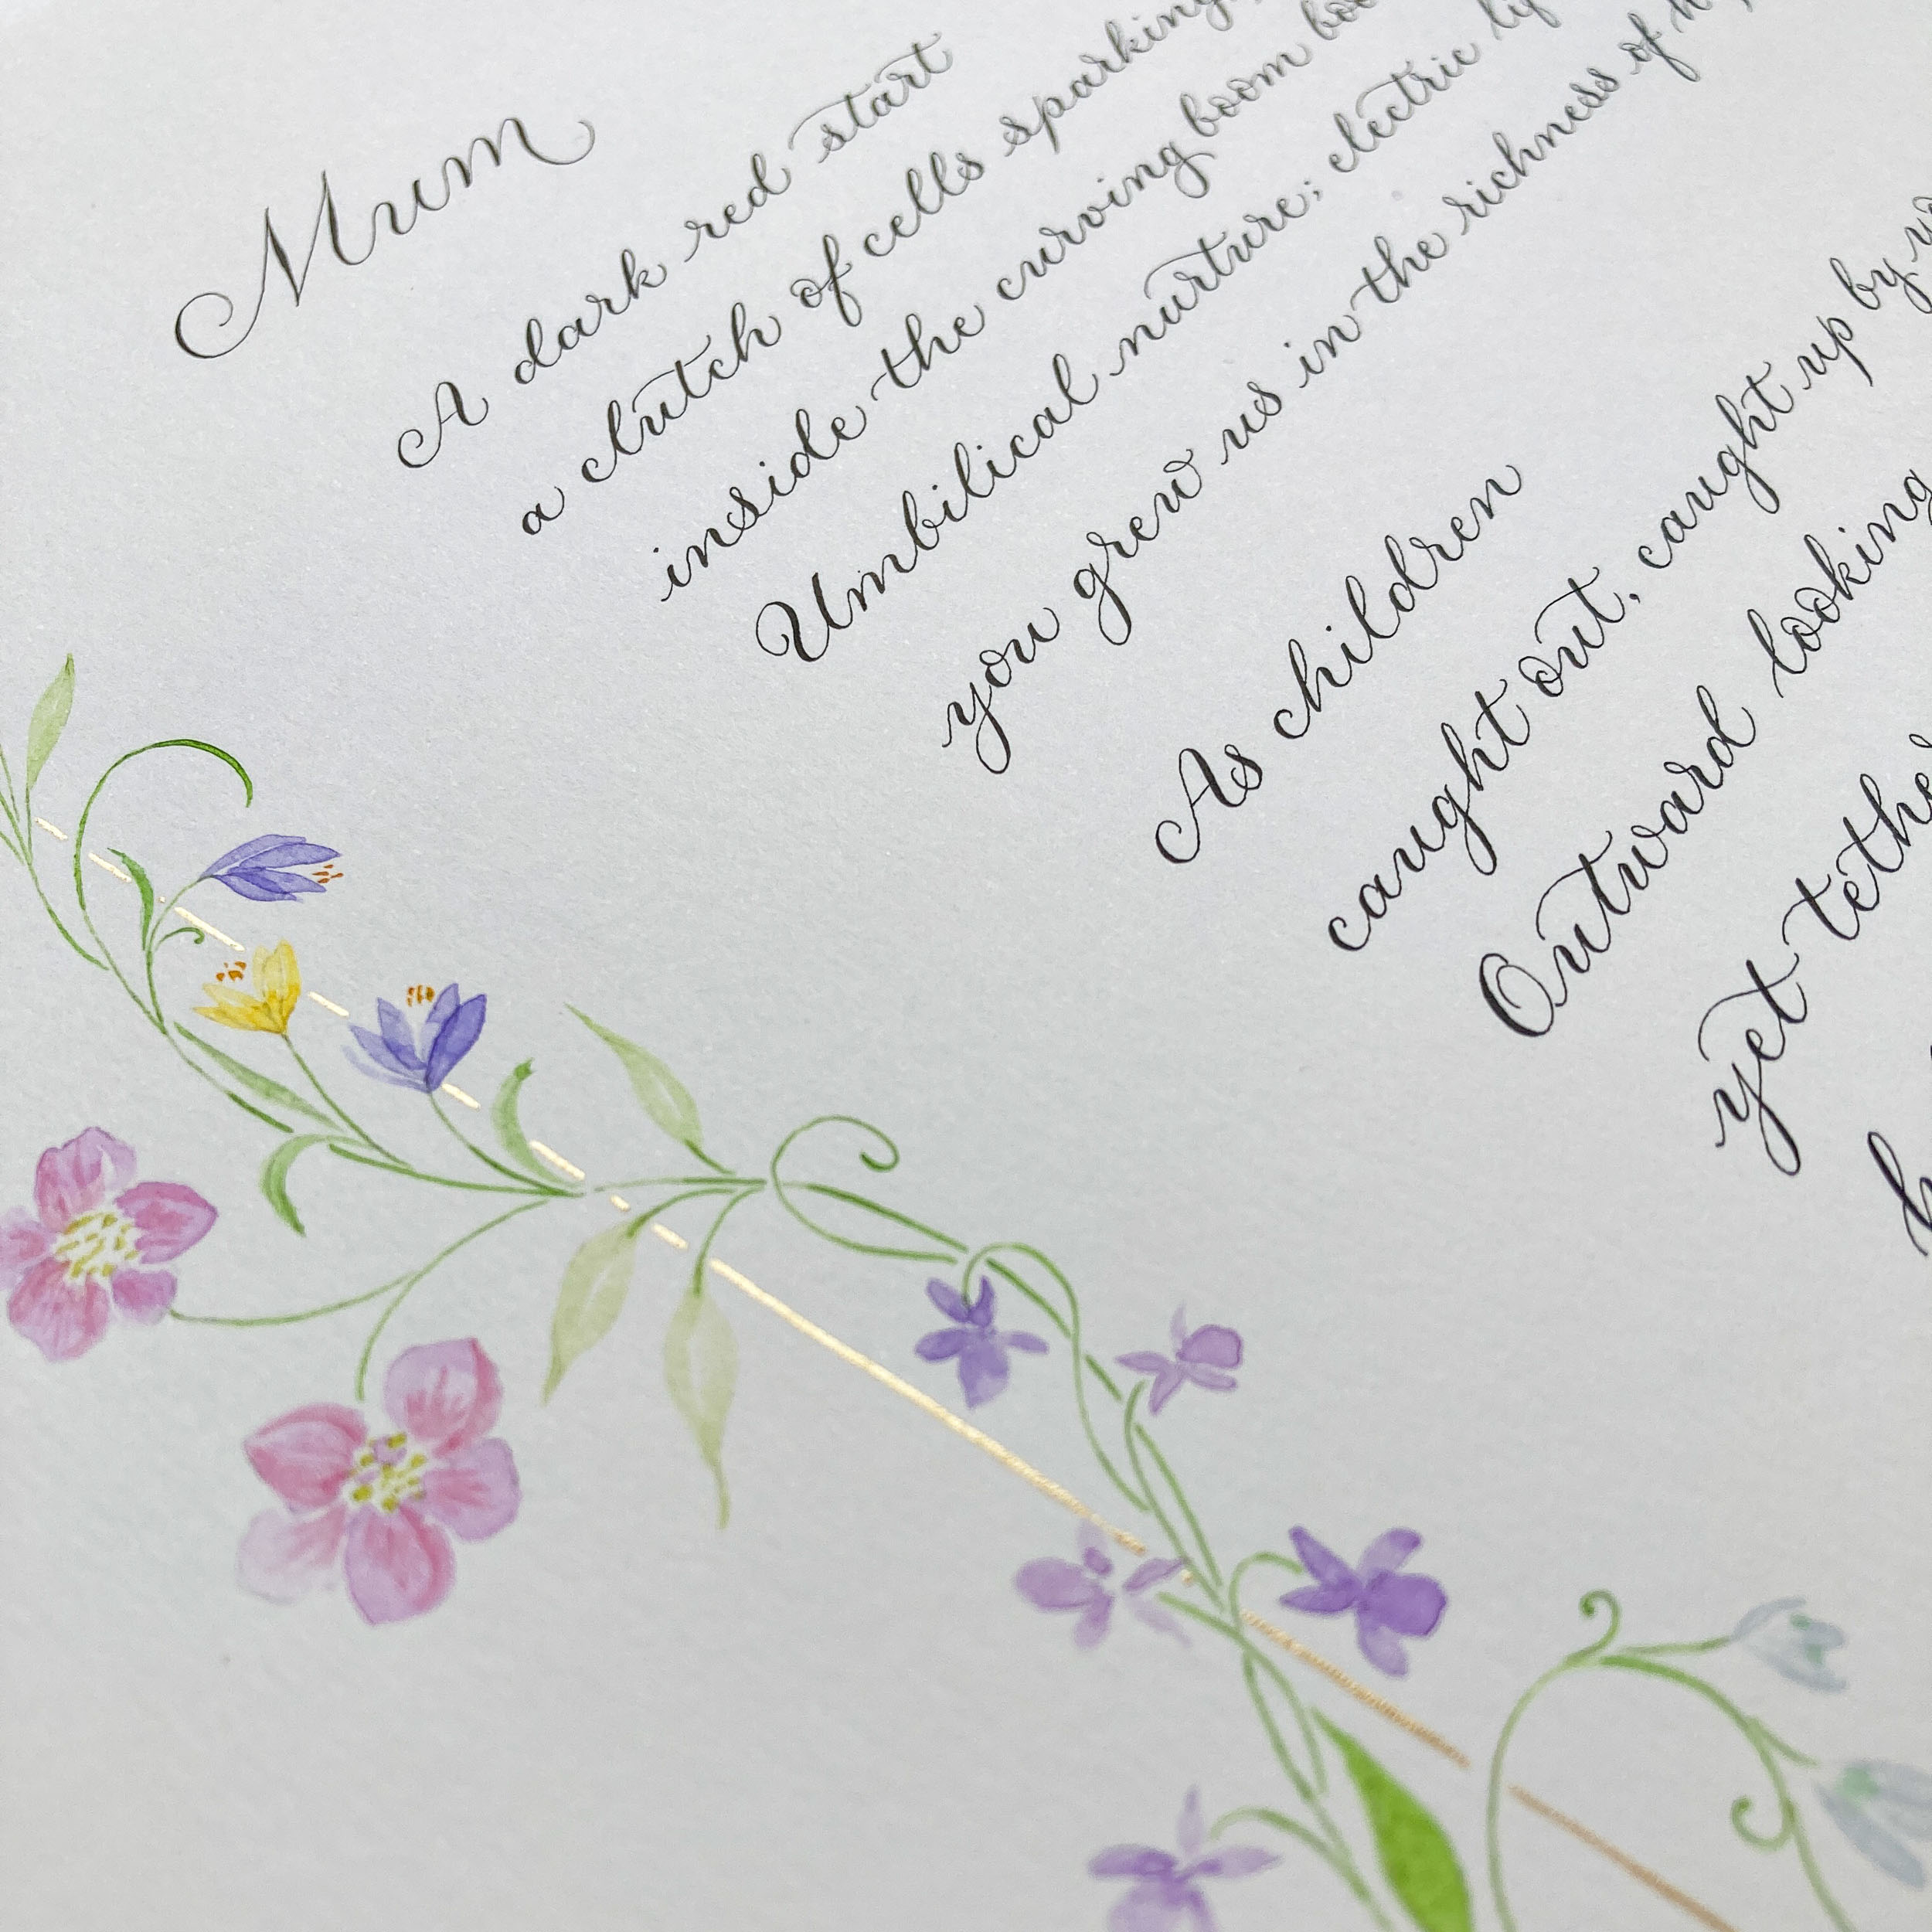 Mum
A dark red start
a clutch of cells sparking
inside the curving boom
Umbilical nurture; electric
you grew us in the richness of
As children
caught out, caught up by
Outward looking
yet